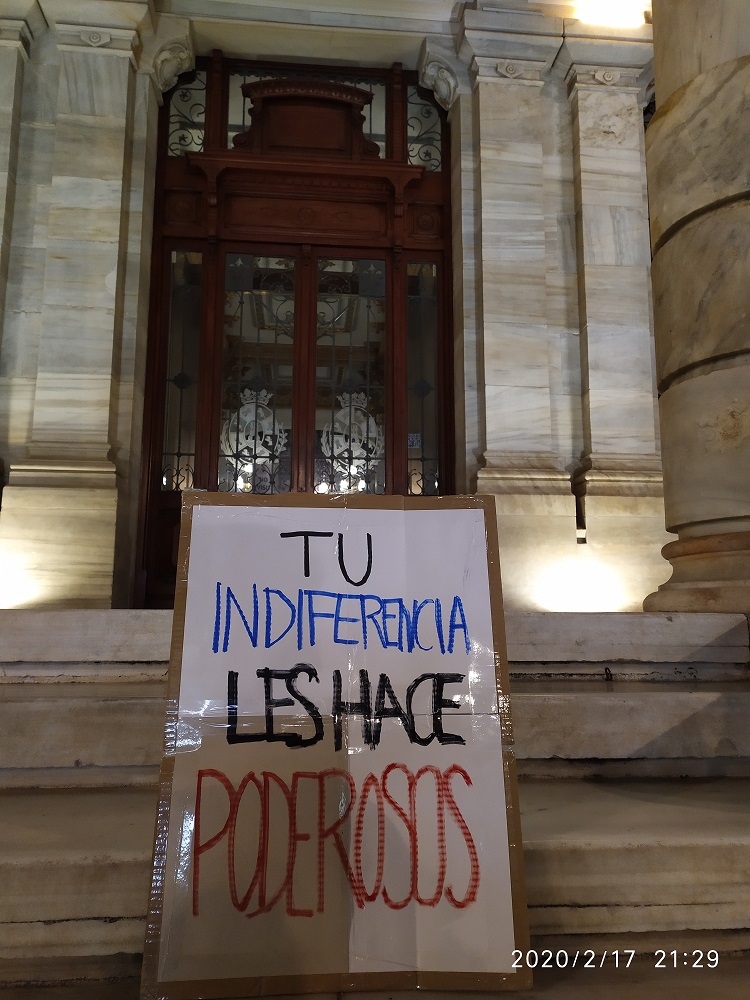 TU
INDIFERENCIA
LES HACE
PODEROSOS
2020/2/17 21:29